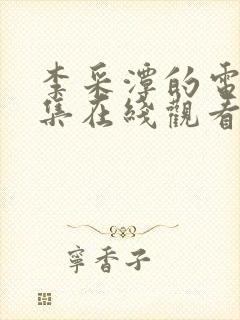 李采潭的電
集在綫觀看
寧香子